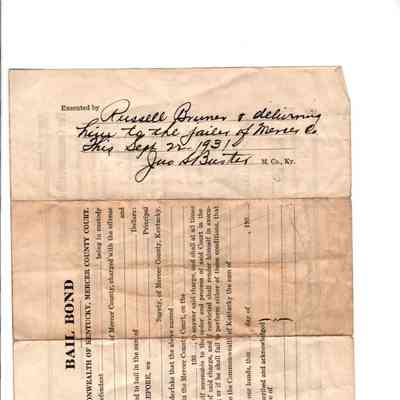 Executed by Russell Bruner & delivering
him to the jailer of Mercer Co
This Sept 22 1931
Jno S Buster M. Co., Ky.
BAIL BOND
ONWEALTH OF KENTUCKY, MERCER COUNTY COURT.
efendant being in custody
of Mercer County, charged with the offense
and
ed to bail in the sum of Dollars:
EFORE, we Principal
Surety, of Mercer County, Kentucky,
dertake that the above named
the Mercer County Court, on the
193 , to answer said charge, and shall at all times
elf amenable to the order and process of said Court in the
of said charge, and if convicted shall render himself in execu-
or if he shall fail to perform either of these conditions, that
the Commonwealth of Kentucky the sum of
our hands, this day of 193
erified and acknowledged